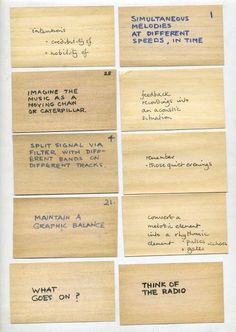 intentions
- credibility of
- nobility of
1
SIMULTANEOUS
MELODIES
AT DIFFERENT
SPEEDS, IN TIME
28
IMAGINE THE
MUSIC AS A
MOVING CHAIN
OR CATERPILLAR.
feedback
recordings into
an acoustic
situation
4
SPLIT SIGNAL VIA
FILTER WITH DIFF-
ERENT BANDS ON
DIFFERENT TRACKS.
remember
those quiet evenings
21.
MAINTAIN A
GRAPHIC BALANCE
convert a
melodic element
into a rhythmic
element • pulses
• gates
echoes
WHAT
GOES ON?
THINK OF
THE RADIO